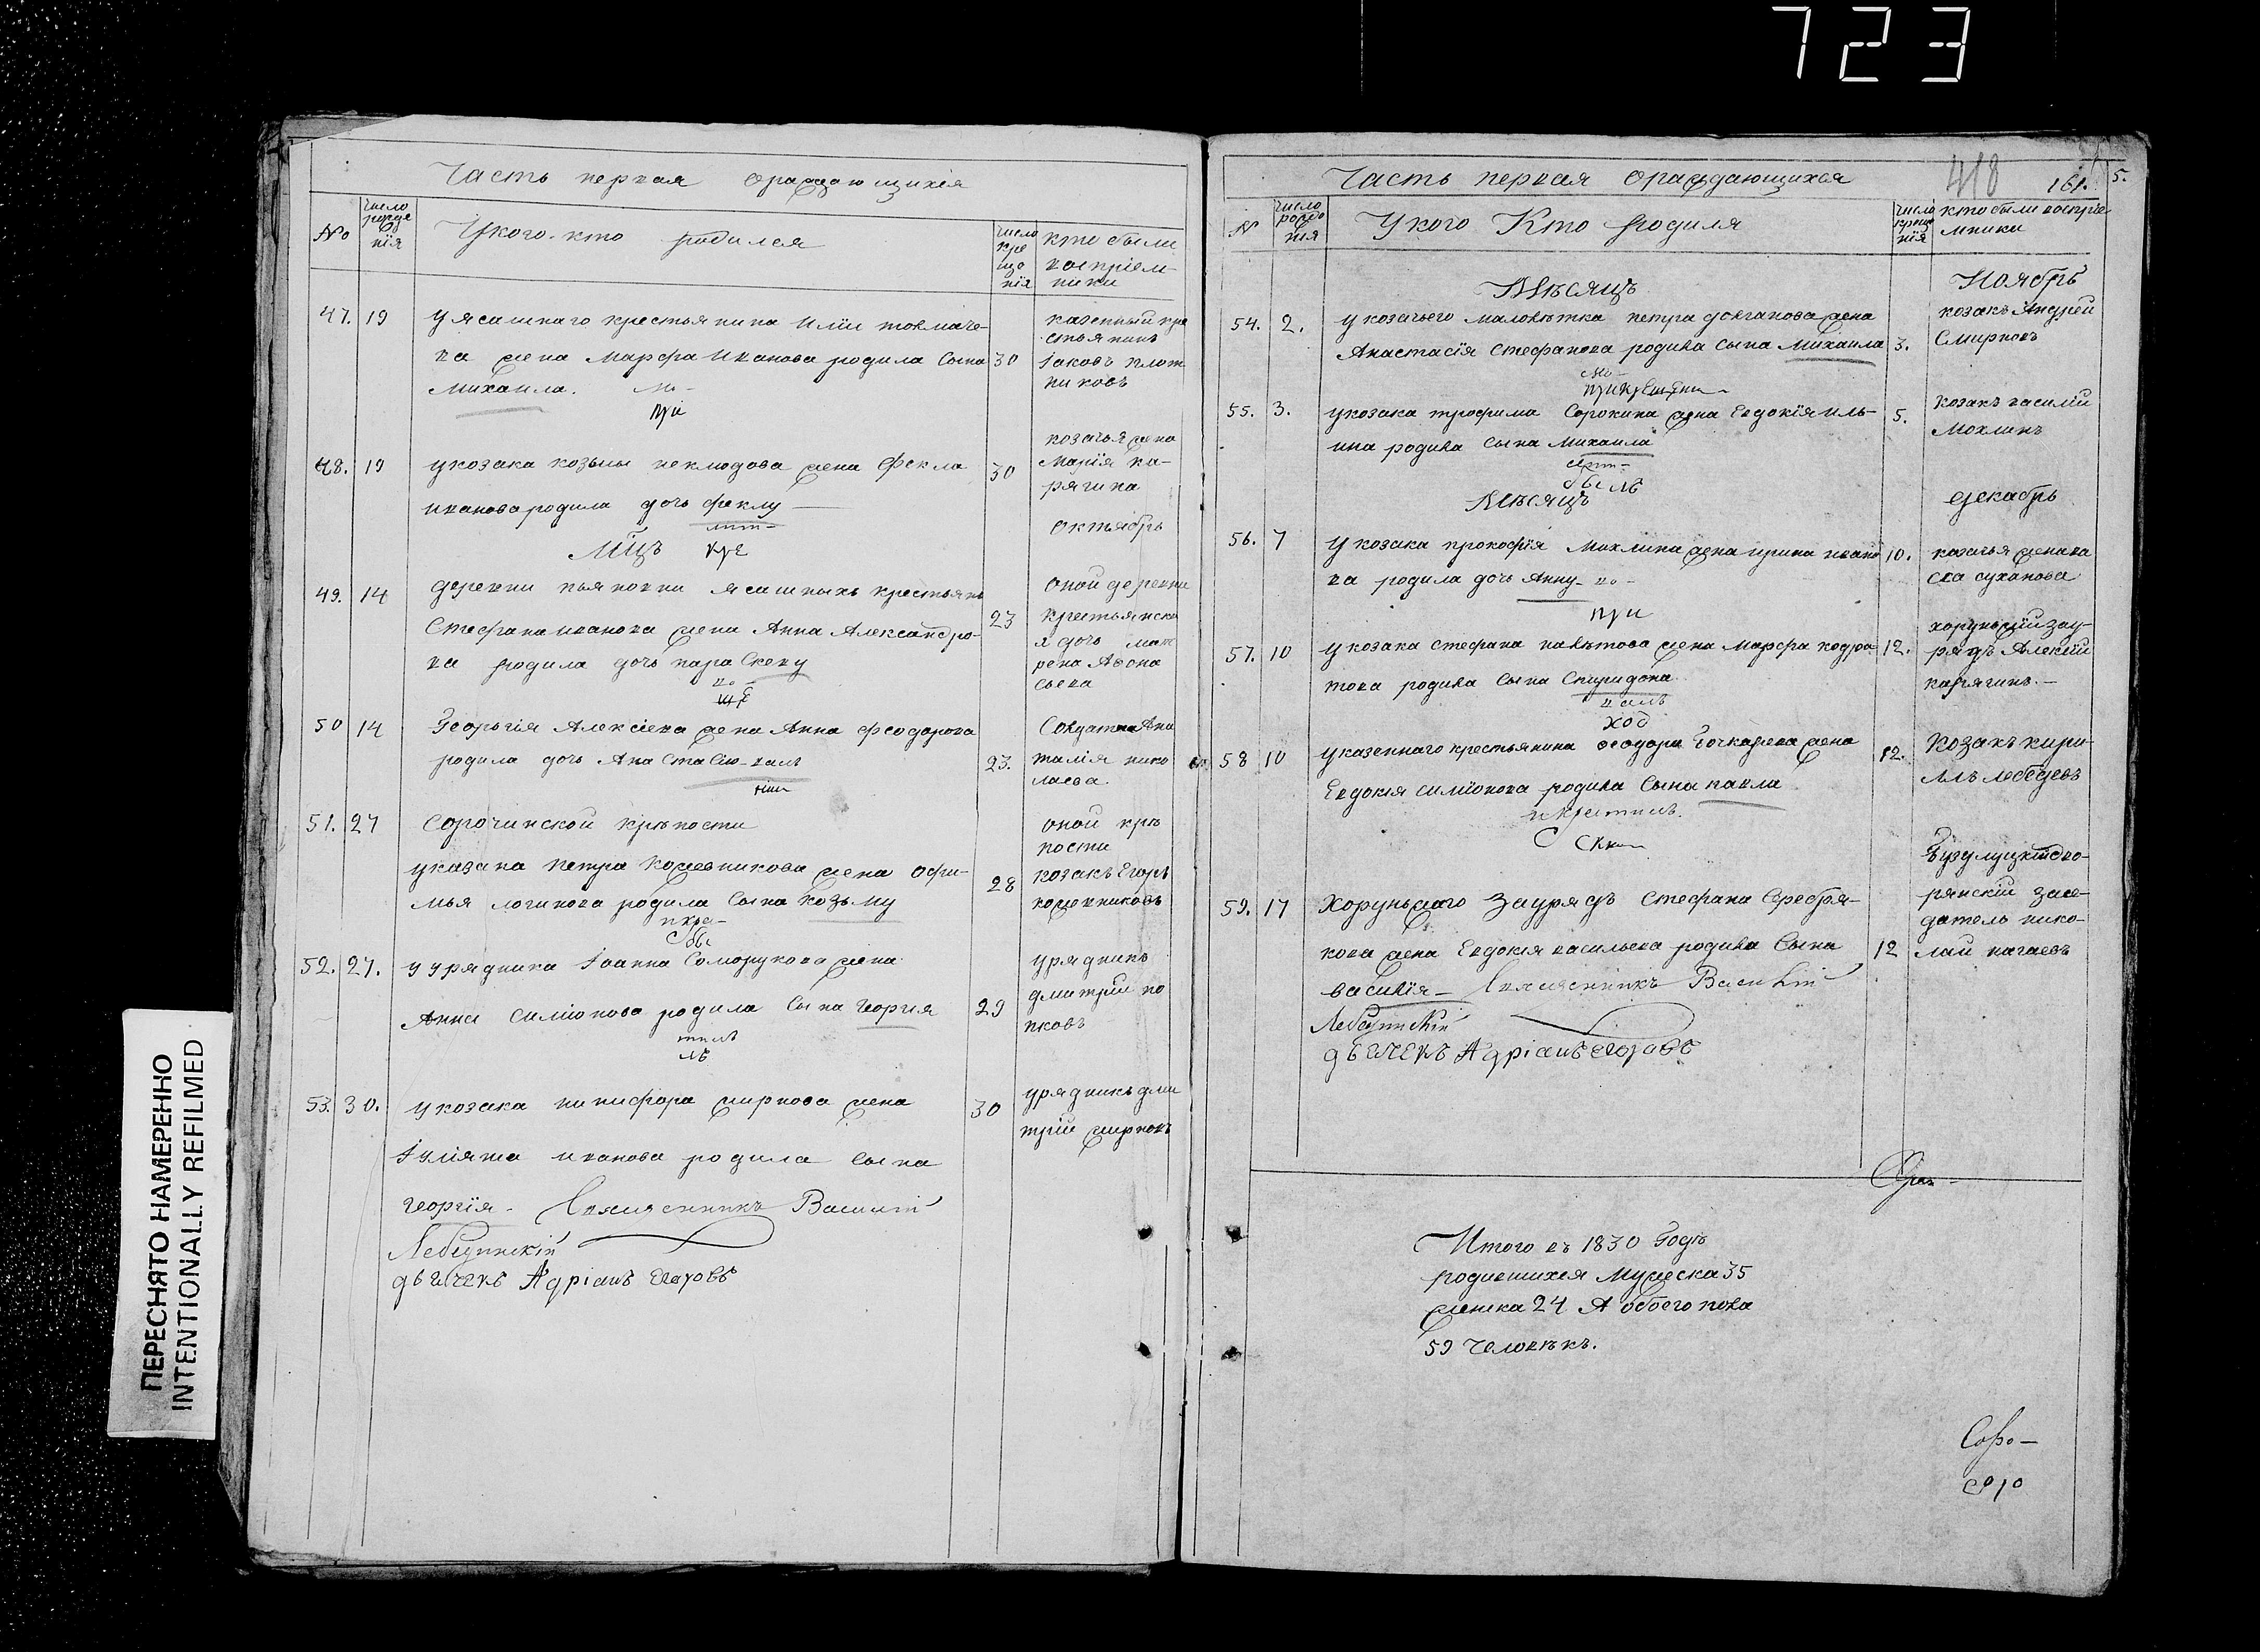 723
ПЕРЕСНЯТО НАМЕРЕННО
INTENTIONALLY REFILMED
Часть первая ораждающихся
No
число рожденія
У кого кто родился
число крещенія
кто были воспріемники
47. 19
у ясашнаго крестьянина Иліи толмаче-
ва жена Марфа Иванова родила сына
Михаила.
30
казенный кре
стьянинъ
Іаковъ плот
никовъ
48. 19
у козака козьмы неклюдова жена Фекла
иванова родила дочь феклу
30
козачья жена
Марія ка-
рягина
мцъ
октябрь
49. 14
деревни пьяновки ясашныхъ крестьянъ
Стефана иванова жена Анна Александро-
ва родила дочь параскеву
23
оной деревни
крестьянска
я дочь мат
рена Афона
сьева
50 14
Георгія Алексіева жена Анна феодорова
родила дочь Анастасію
23.
Солдатка Ана
талія нико
лаева
51. 27
Сорочинской крѣпости
у казака петра кожевникова жена офи-
мья логинова родила сына козьму
28
оной крѣ
пости
козакъ Егоръ
кожевниковъ
52. 27.
у урядника Іоанна Соморукова жена
Анна симіонова родила сына георгія
29
урядникъ
дмитрій по
пковъ
53. 30.
у козака никифора жиркова жена
Іуліята иванова родила сына
георгія - Священникъ Василій
Лебединскій
дьячекъ Адріанъ Егоровъ
30
урядникъ дми
трій жирковъ
Часть первая ораждающихся
418
161.
5.
N
число рожденія
У кого Кто родиля
число крещенія
кто были воспріе
мники
Мѣсяцъ
Ноябрь
54. 2.
у козачьего малолѣтка петра долганова жена
Анастасія стефанова родила сына михаила
3.
козакъ Андрей
Смирновъ
55. 3.
у козака трофима Сорокина жена Евдокія иль-
ина родила сына михаила
5.
козакъ василій
Мохлинъ
Мѣсяцъ
декабрь
56. 7
У козака прокофія Мохлина жена ирина ивано
ва родила дочь Анну
10.
козачья жена ва
сса суханова
57. 10
у козака стефана павлѣтова жена Марфа кодра
това родила сына Спиридона
12.
хорунжій зау-
рядъ Алексій
карягинъ.
58 10
у казеннаго крестьянина феодора Бочкарева жена
Евдокія симіонова родила сына павла
12.
Козакъ кири-
лъ лебедевъ
59. 17
Хорунжаго Заурядъ Стефана Серебря-
кова жена Евдокія васильева родила сына
василія - Священникъ Василій
Лебединскій
дьячекъ Адріанъ Егоровъ
12
Бузулуцкій дво-
рянскій засе-
датель нико-
лай нагаевъ
Итого въ 1830 Годѣ
родившихся мужеска 35
женска 24 А обоего пола
59 человѣкъ.